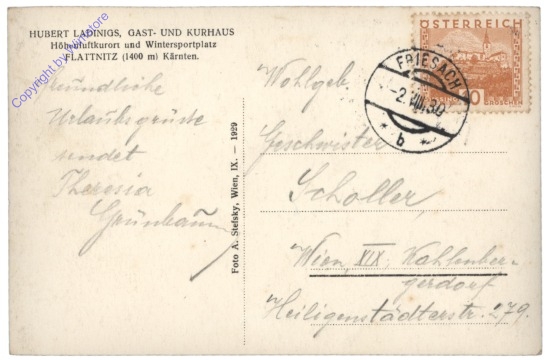 HUBERT LADINIGS, GAST- UND KURHAUS
Höhenluftkurort und Wintersportplatz
FLATTNITZ (1400 m) Kärnten.
Copyright by Winstore
Freundliche
Urlaubsgrüsse
sendet
Theresia
Grünbaum
Foto A. Stefsky, Wien, IX. — 1929
ÖSTERREICH
GROSCHEN
FRIESACH
-2.VIII.30
* b *
Wohlgeb.
Geschwister
Scholler,
Wien, XIX, Kahlenber-
gerdorf
Heiligenstädterstr. 279.